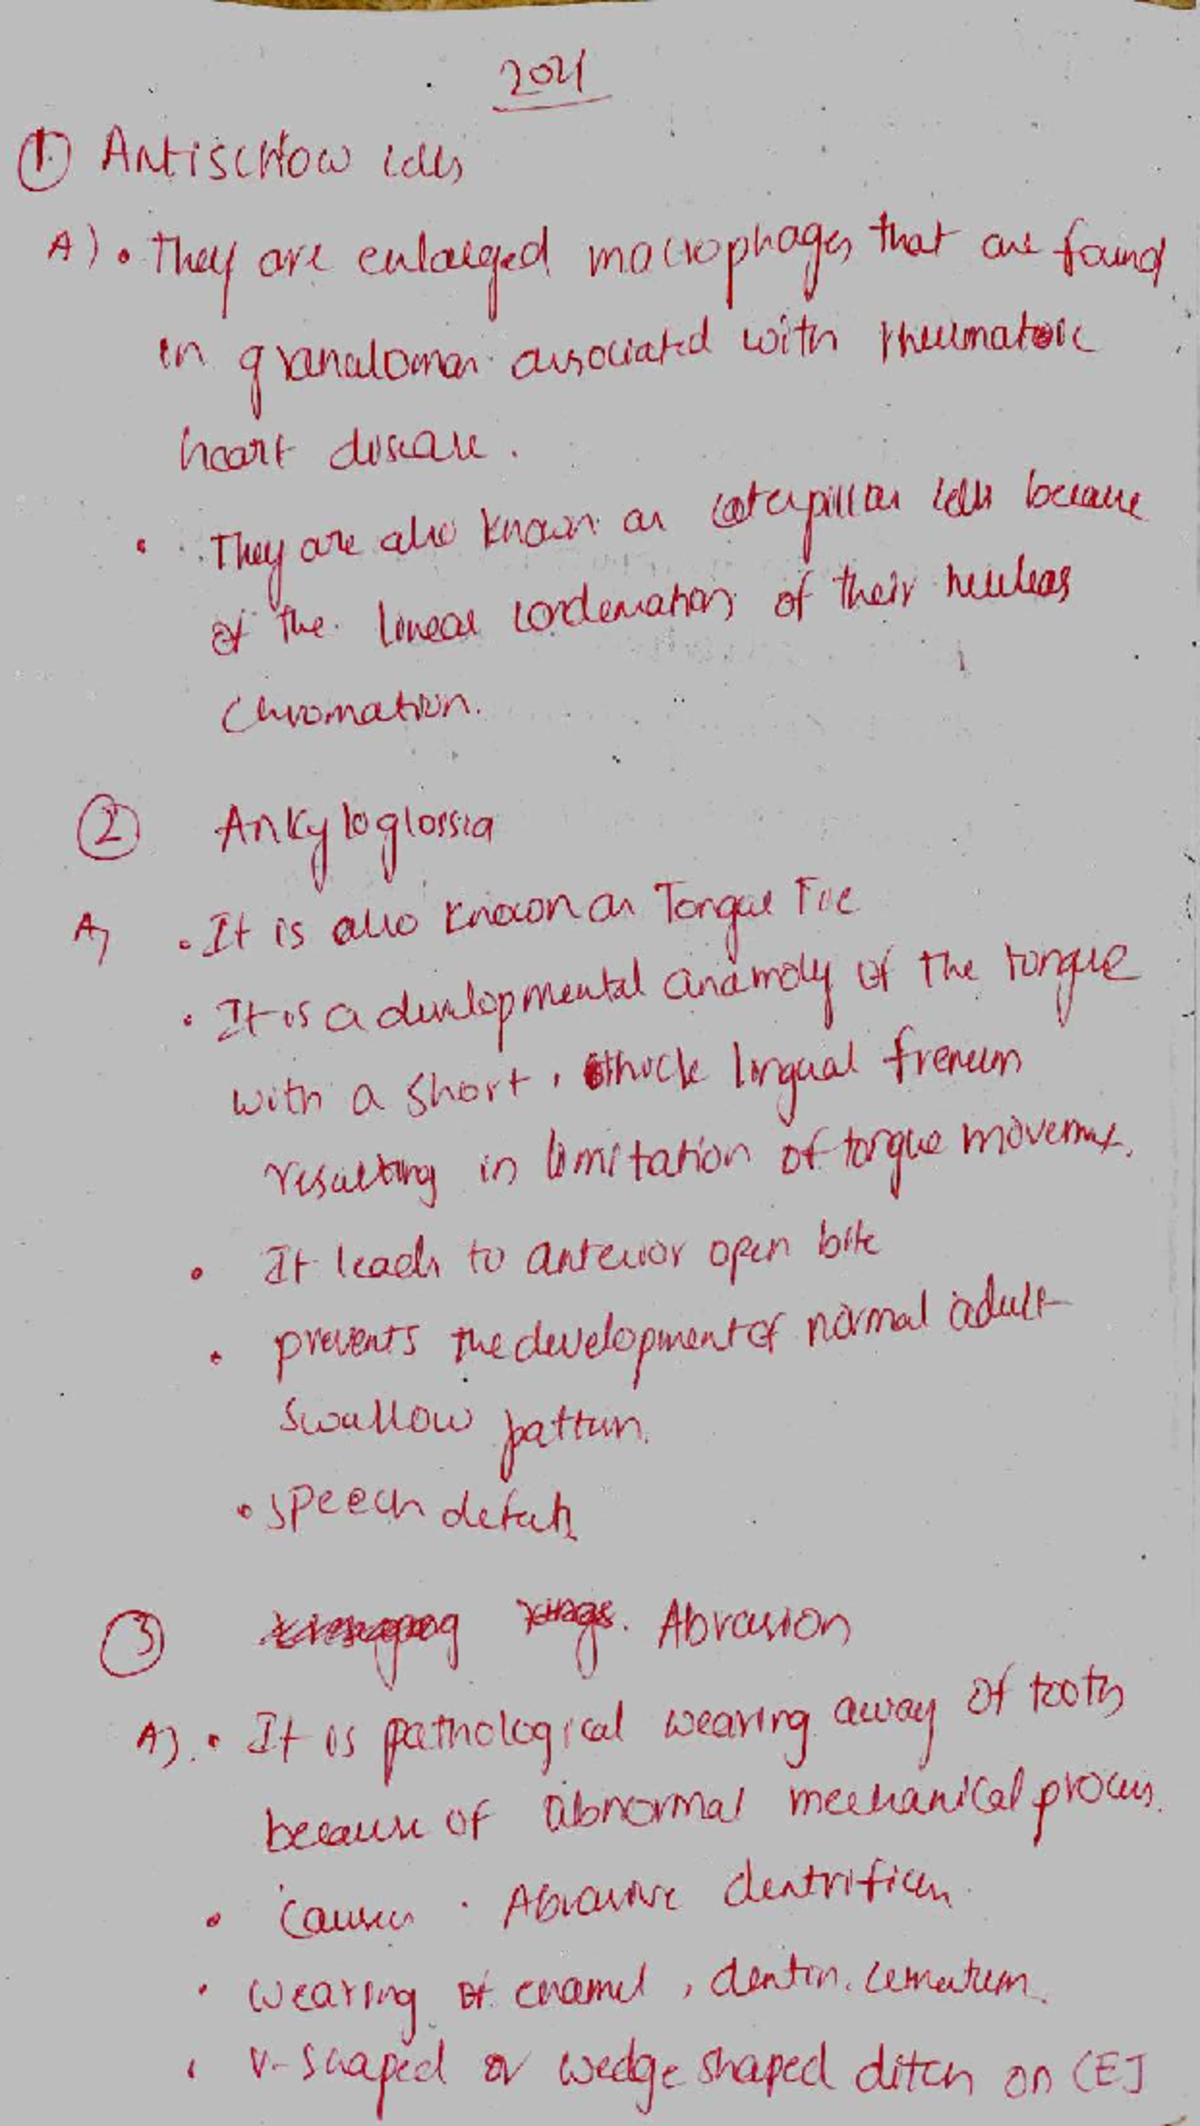 2021
① Antischow cells
A) • They are enlarged macrophages that are found
in granulomas associated with rheumatoic
heart disease.
• They are also known as caterpillar cells because
of the linear condensation of their nucleus
Chromation.
② Ankyloglossia
A) • It is also known as Tongue Tie
• It is a developmental anamoly of the tongue
with a short, thick lingual frenum
resulting in limitation of tongue movement.
• It leads to anterior open bite
• prevents the development of normal adult
swallow pattern.
• speech defects
③ Abrasion
A) • It is pathological wearing away of tooth
because of abnormal mechanical process.
• Causes • Abrasive dentrifices.
• wearing of enamel, dentin, cementum.
• V-shaped or wedge shaped ditch on CEJ